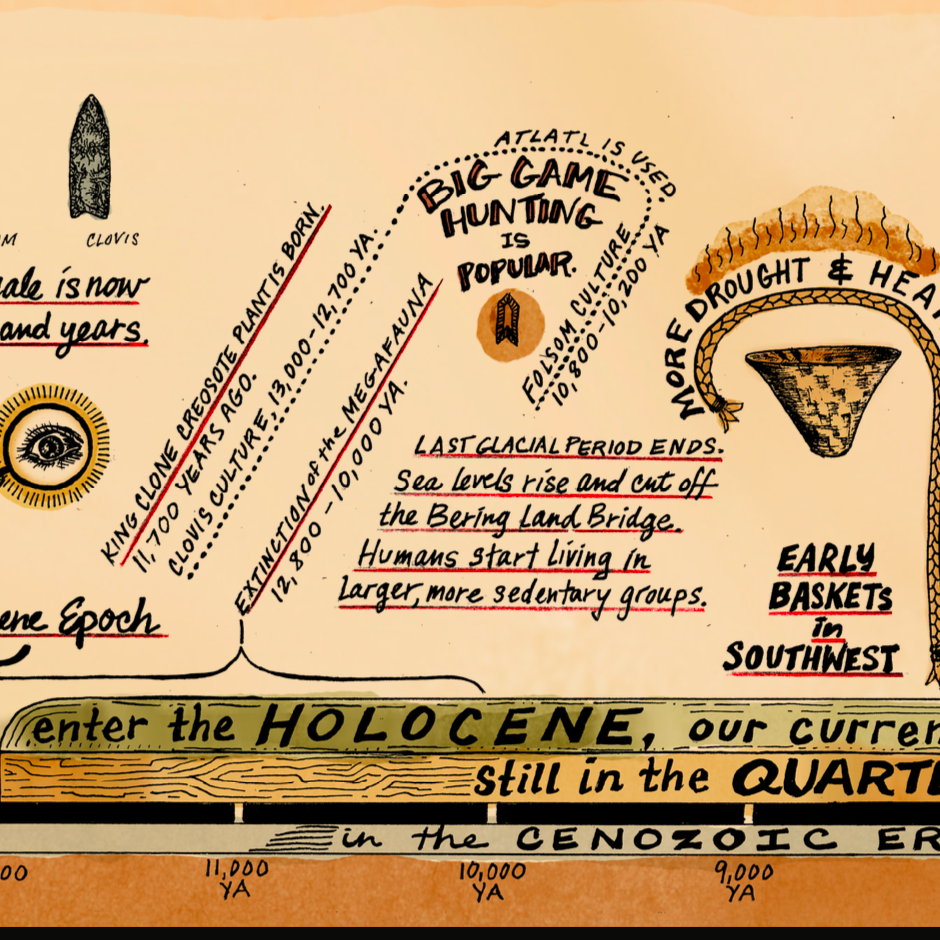 CLOVIS
is now
and years.
KING CLONE CREOSOTE PLANT IS BORN.
11,700 YEARS AGO.
CLOVIS CULTURE, 13,000-12,700 YA.
EXTINCTION of the MEGAFAUNA
12,800-10,000 YA.
ATLATL IS USED
BIG GAME
HUNTING
IS
POPULAR.
FOLSOM CULTURE
10,800-10,200 YA
LAST GLACIAL PERIOD ENDS.
Sea levels rise and cut off
the Bering Land Bridge.
Humans start living in
Larger, more sedentary groups.
MORE DROUGHT & HEA
EARLY
BASKETS
in
SOUTHWEST
ene Epoch
enter the HOLOCENE, our curren
still in the QUART
in the CENOZOIC ER
00
11,000
YA
10,000
YA
9,000
YA